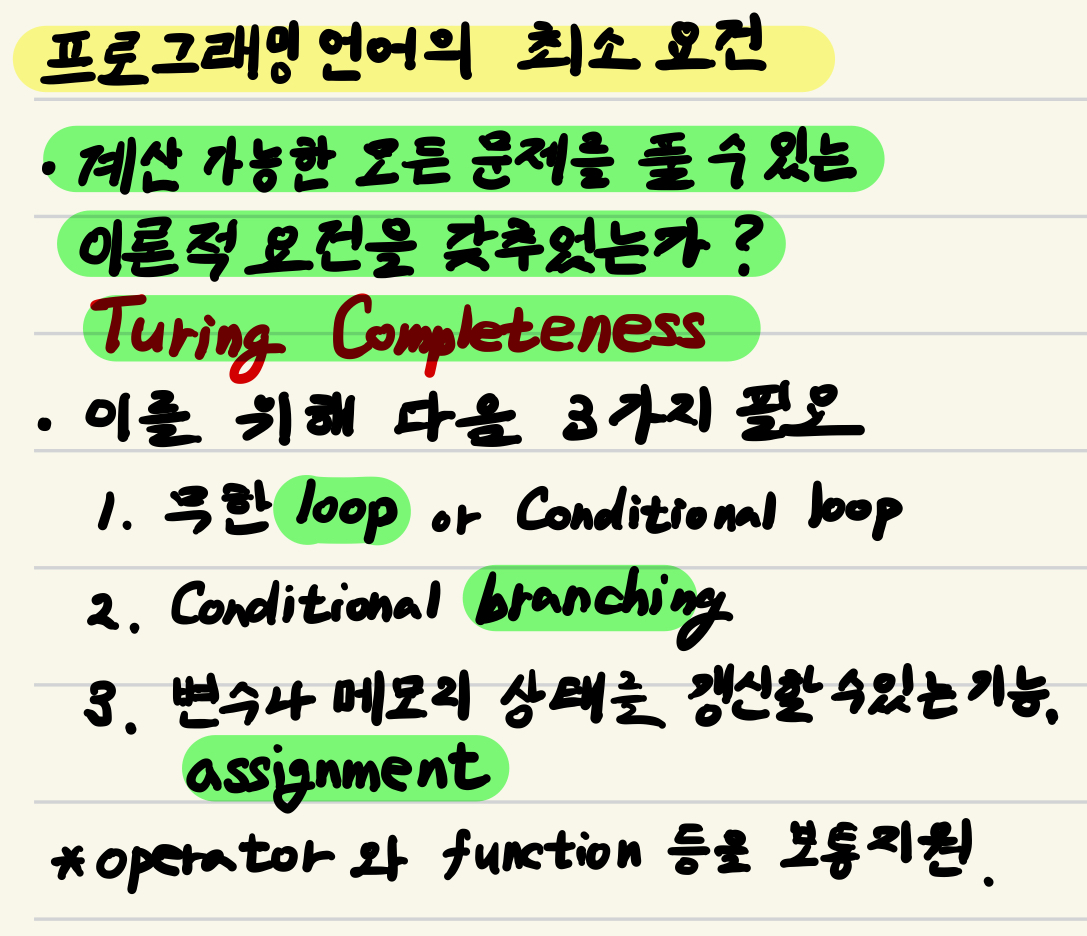 프로그래밍 언어의 최소 요건
· 계산 가능한 모든 문제를 풀 수 있는
이론적 요건을 갖추었는가?
Turing Completeness
· 이를 위해 다음 3가지 필요
1. 무한 loop or Conditional loop
2. Conditional branching
3. 변수나 메모리 상태를 갱신할 수 있는 기능.
assignment
* operator 와 function 등을 보통 지원.